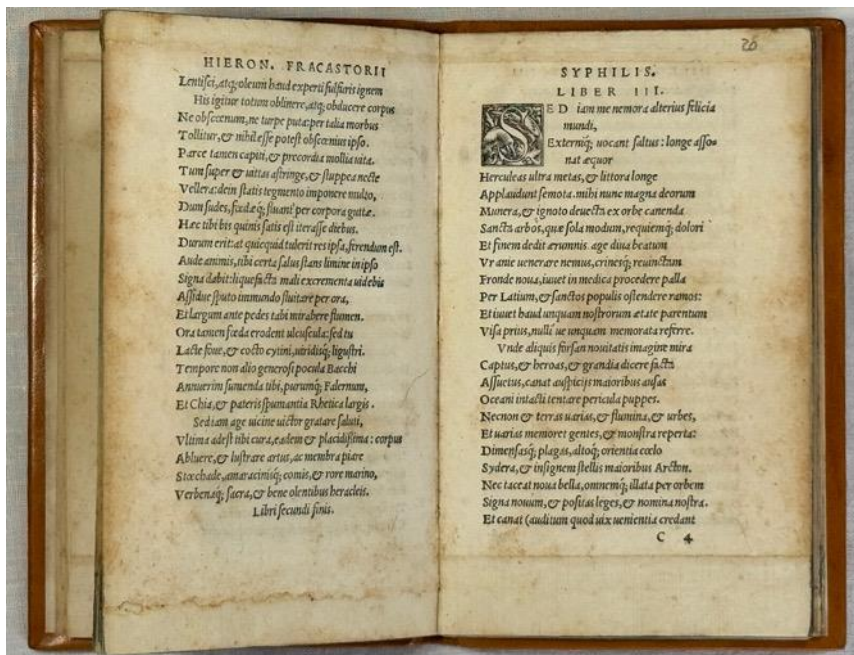 HIERON. FRACASTORII
Lentisci, atq; oleum haud experti sulfuris ignem
His igitur totum oblinere, atq; obducere corpus
Ne obscœnum, ne turpe puta: per talia morbus
Tollitur, & nihil esse potest obscœnius ipso.
Parce tamen capiti, & precordia mollia vita.
Tum super & vittas astringe, & stuppea necte
Vellera: dein stratis tegmento imponere multo,
Dum sudes, fœdæq; fluant per corpora guttæ.
Hæc tibi bis quinis satis est iterasse diebus.
Durum erit: at quicquid tulerit res ipsa, ferendum est.
Aude animis, tibi certa salus stans limine in ipso
Signa dabit: liquefacta mali excrementa uidebis
Assidue sputo immundo fluitare per ora,
Et largum ante pedes tabi mirabere flumen.
Ora tamen fœda erodent ulcuscula: sed tu
Lacte foue, & cocto cytini, uiridisq; ligustri.
Tempore non alio generosi pocula Bacchi
Annuerim sumenda tibi, purumq; Falernum,
Et Chia, & pateris spumantia Rhetica largis.
Sed iam age uicine uictor gratare saluti,
Vltima adest tibi cura, eadem & placidissima: corpus
Abluere, & lustrare artus, ac membra piare
Stœchade, amaracinisq; comis, & rore marino,
Verbenaq; sacra, & bene olentibus heracleis.
Libri secundi finis.
20
SYPHILIS.
LIBER III.
SED iam me nemora alterius felicia
mundi,
Externiq; uocant saltus: longe asso-
nat æquor
Herculeas ultra metas, & littora longe
Applaudunt semota. mihi nunc magna deorum
Munera, & ignoto deuecta ex orbe canenda
Sancta arbos, quæ sola modum, requiemq; dolori
Et finem dedit ærumnis. age diua beatum
Vranie uenerare nemus, crinesq; reuinctam
Fronde noua, iuuet in medica procedere palla
Per Latium, & sanctos populis ostendere ramos:
Et iuuet haud unquam nostrorum ætate parentum
Visa prius, nulli ue unquam memorata referre.
Vnde aliquis forsan nouitatis imagine mira
Captus, & heroas, & grandia dicere facta
Assuetus, canat auspicijs maioribus ausas
Oceani intacti tentare pericula puppes.
Necnon & terras uarias, & flumina, & urbes,
Et uarias memoret gentes, & monstra reperta:
Dimensasq; plagas, altoq; orientia cœlo
Sydera, & insignem stellis maioribus Arcton.
Nec taceat noua bella, omnemq; illata per orbem
Signa nouum, & positas leges, & nomina nostra.
Et canat (auditum quod uix uenientia credant
C 4